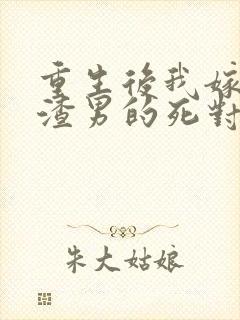 重生後我嫁
渣男的死對
朱大姑娘